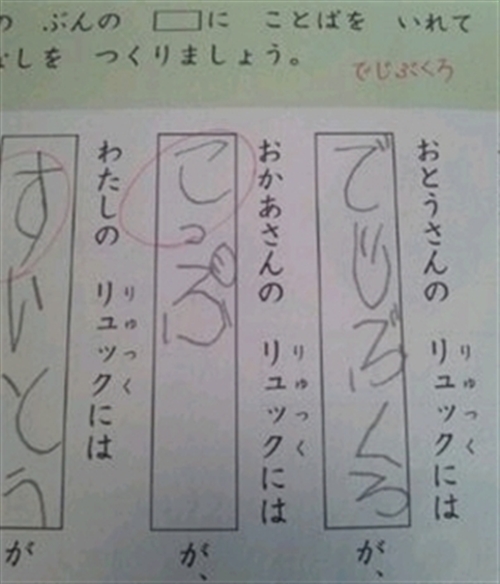 の ぶんの □に ことばを いれて
なしを つくりましょう。
でじぶくろ
おとうさんの リュックには
りゅっく
でじぶくろ
が、
おかあさんの リュックには
りゅっく
こっぷ
が、
わたしの リュックには
りゅっく
すいとう
が